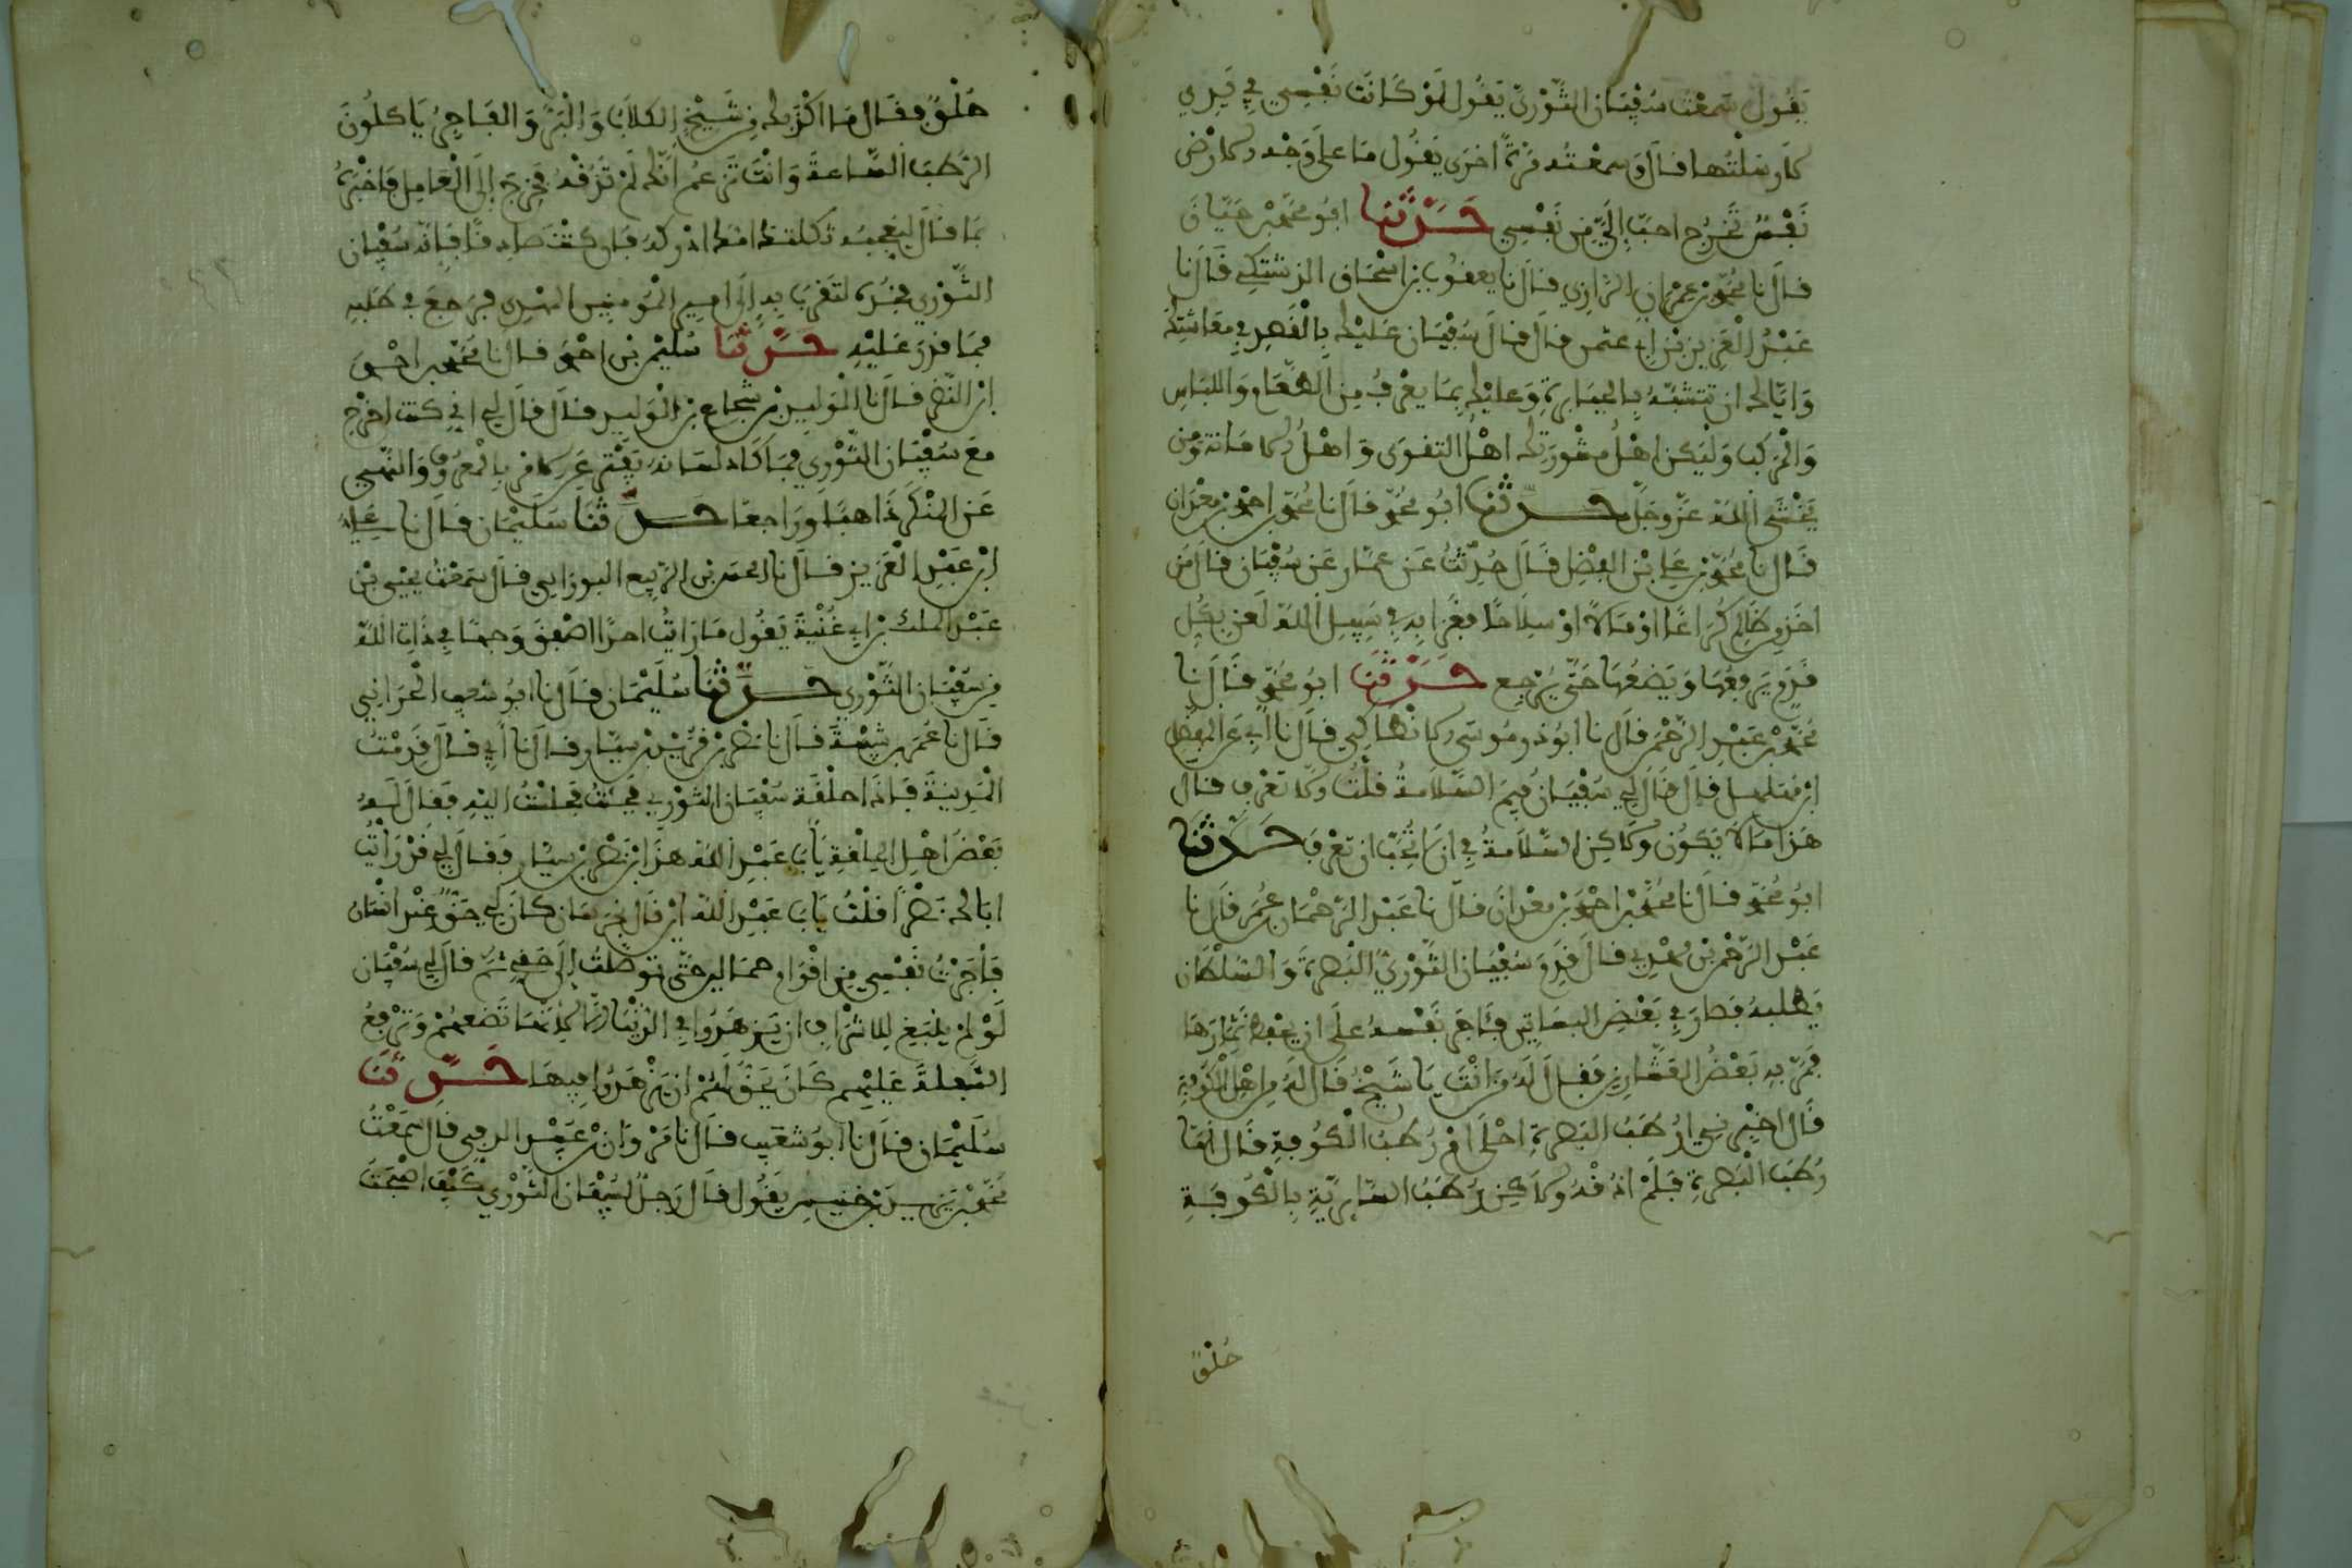 يقول سمعت سفيان الثوري يقول لو كانت نفسي في يدي
لأرسلتها قال وسمعته مرة اخرى يقول ما على وجه الأرض
نفس تخرج احب إلي من نفسي حدثنا ابو محمد بن حيان
قال نا محمد بن عمران الرازي قال نا يعقوب بن اسحاق الدشتكي قال نا
عبد العزيز بن ابي عثمن قال قال سفيان عليك بالقصد في معاشتك
واياك ان تتشبه بالجبابرة وعليك بما يعرف من الطعام واللباس
والمركب وليكن اهل مشورتك اهل التقوى واهل الامانة ومن
يخشى الله عز وجل حدثنا ابو محمد قال نا محمد بن احمد بن معدان
قال نا محمد بن علي بن الفضل قال حدثت عن عمار عن سفيان قال من
اخذ من ظالم كراعا او مالا او سلاحا فغزا به في سبيل الله لعن بكل
قدم يرفعها ويضعها حتى يرجع حدثنا ابو محمد قال نا
محمد بن عبد الرحمن قال نا ابو ذر موسى الانطاكي قال نا ابي عن المفضل
ابن مهلهل قال قال لي سفيان فيم السلامة قلت ولا تعرف قال
هذا ما لا يكون ولاكن السلامة في ان لا تحب ان تعرف حدثنا
ابو محمد قال نا محمد بن احمد بن معدان قال نا عبد الرحمان عمر قال نا
عبد الرحمن بن مهدي قال قدم سفيان الثوري البصرة والسلطان
يطلبه فصار في بعض البساتين فئاجر نفسه على ان يحفظ ثمارها
فمر به بعض العشارين فقال له من انت يا شيخ قال له من اهل الكوفة
قال اخبرني ارطب البصرة احلى ام رطب الكوفة قال اما
رطب البصرة فلم اذقه ولاكن رطب السابرية بالكوفة
حلو
حلو فقال ما اكذبك من شيخ الكلاب والبر والفاجر ياكلون
الرطب الساعة وانت تزعم انك لم تذقه فخرج إلى العامل فاخبره
بما قال ليعجبه ثكلتك امك ادركه فان كنت صادقا فإنه سفيان
الثوري فخذه لتقرب به إلى امير المومنين المهدي فرجع في طلبه
فما قدر عليه حدثنا سليمن بن احمد قال نا محمد بن احمد
ابن النضر قال نا الوليد بن شجاع بن الوليد قال قال لي ابي كنت اخرج
مع سفيان الثوري فما كاد لسانه يفتر عن الامر بالمعروف والنهي
عن المنكر ذاهبا وراجعا حدثنا سليمان قال نا علي
ابن عبد العزيز قال نا الحسن بن الربيع البوراني قال سمعت يحيى بن
عبد الملك بن ابي غنية يقول ما رايت احدا اصفق وجها في ذات الله
من سفيان الثوري حدثنا سليمان قال نا ابو شعيب الحراني
قال نا عمر بن شبة قال نا نصر بن قديد بن سيار قال نا ابي قال قدمت
المدينة فإذا حلقة سفيان الثوري فجئت فجلست اليه فقال له
بعض اهل الحلقة يابا عبد الله هذا ابن نصر بن سيار فقال لي قد رايت
اباك نصرا قلت يابا عبد الله
فاجرت نفسي من اقوام حتى توصلت إلى حقي ثم قال لي سفيان
لو لم ينبغ للاشراف ان يزهدوا في الدنيا إلا لانها تضعهم وترفع
السفلة عليهم كان يحق لهم ان يزهدوا فيها حدثنا
سليمان قال نا ابو شعيب قال نا مروان بن عبيد قال سمعت
محمد بن يزيد بن خنيس يقول قال رجل لسفيان الثوري كيف اصبحت